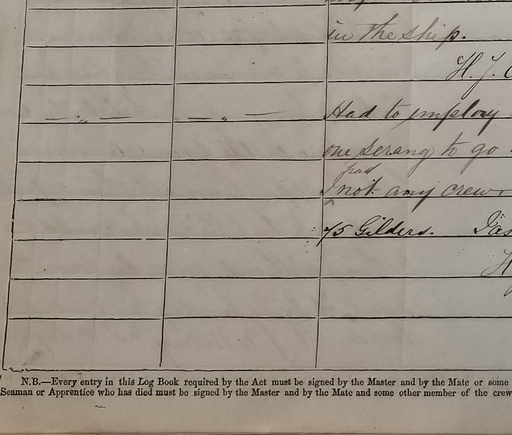 in the ship.
H. J.
— " — — " — Had to employ
one serang to go
had
I not any crew
75 Gilders. Jas
H
N.B.—Every entry in this Log Book required by the Act must be signed by the Master and by the Mate or some
Seaman or Apprentice who has died must be signed by the Master and by the Mate and some other member of the crew